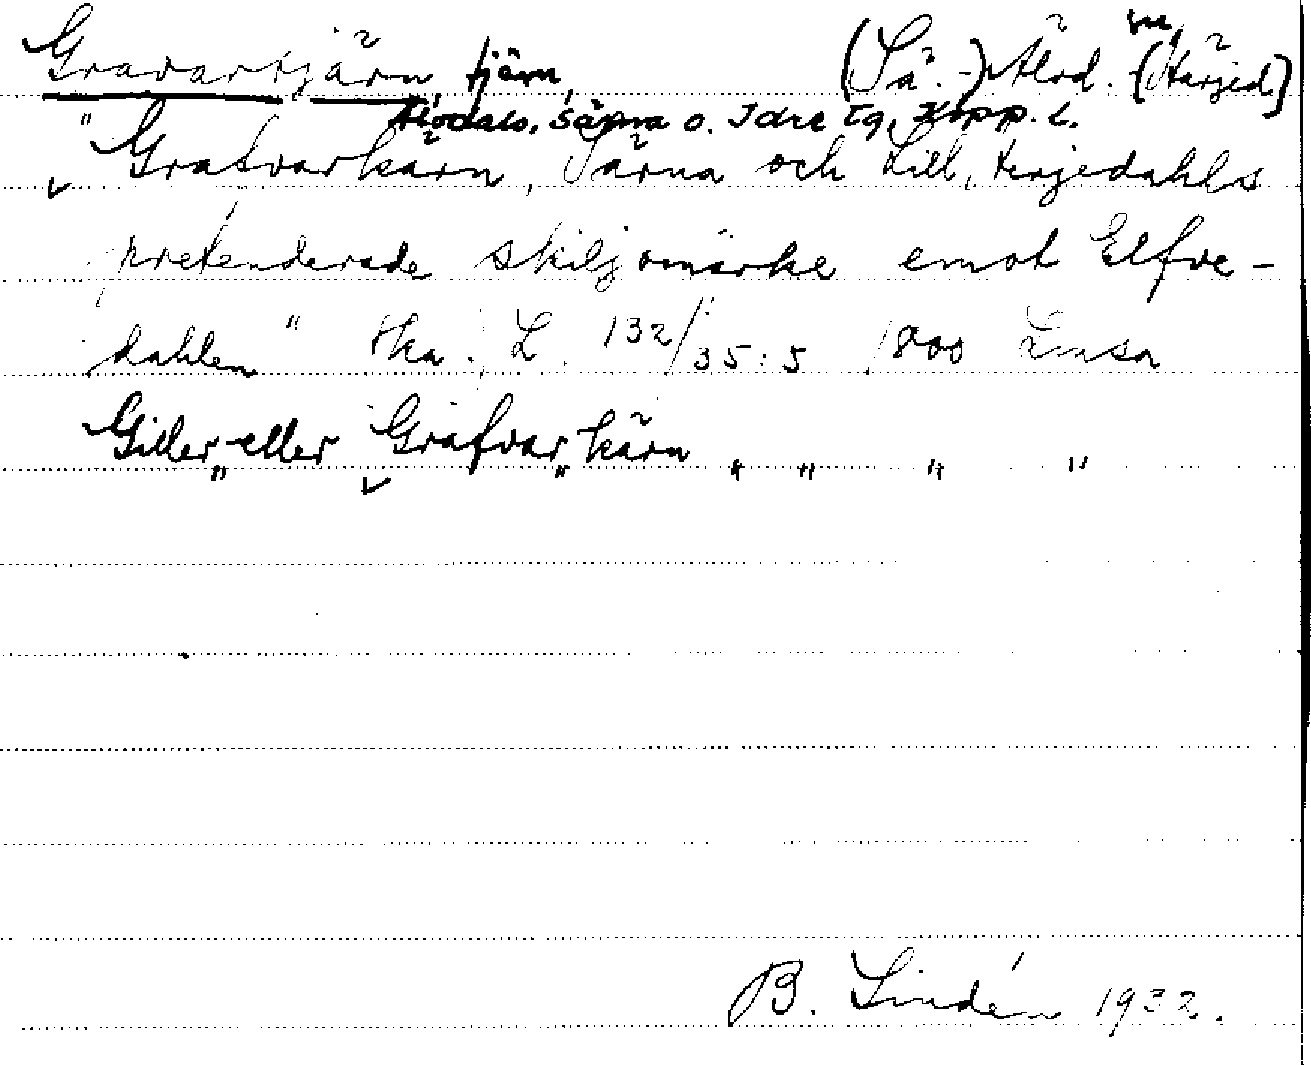 Gravartjärn, tjärn, (Sä.-) Älvd. (Härjed)
Älvdals, Särna o. Idre tg, Kopp. l.
"Grafvarkärn, Särna och Lill, Herjedahls
pretenderade skiljomärke emot Elfve-
dahlen" Aka. L. 132/35:5 1800 Lmsa
Giller eller Grafvar kärn " " " "
B. Lindén 1932.